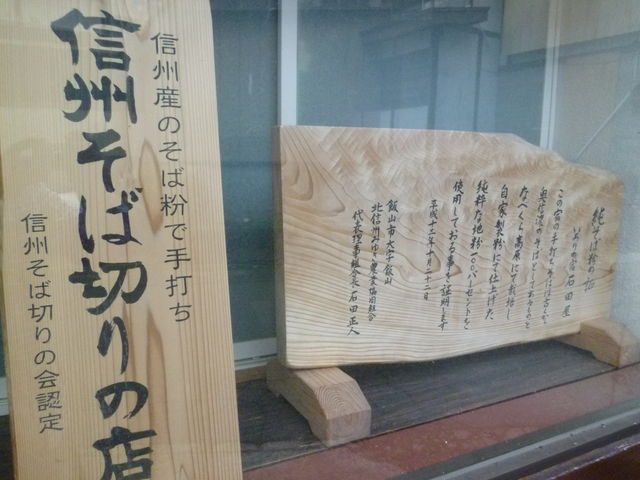 信州産のそば粉で手打ち
信州そば切りの店
信州そば切りの会認定
純そば粉の宿
石田屋
この宿の手打ちそばは古くから
奥信濃のそばどころであるもとの
なべくら高原にて栽培し
自家製粉にて仕上げた
純粋な地粉一〇〇パーセントを
使用しておる事を証明します
平成十二年十月二十二日
飯山市大字飯山
北信州みゆき農業協同組合
代表理事組合長 石田正人